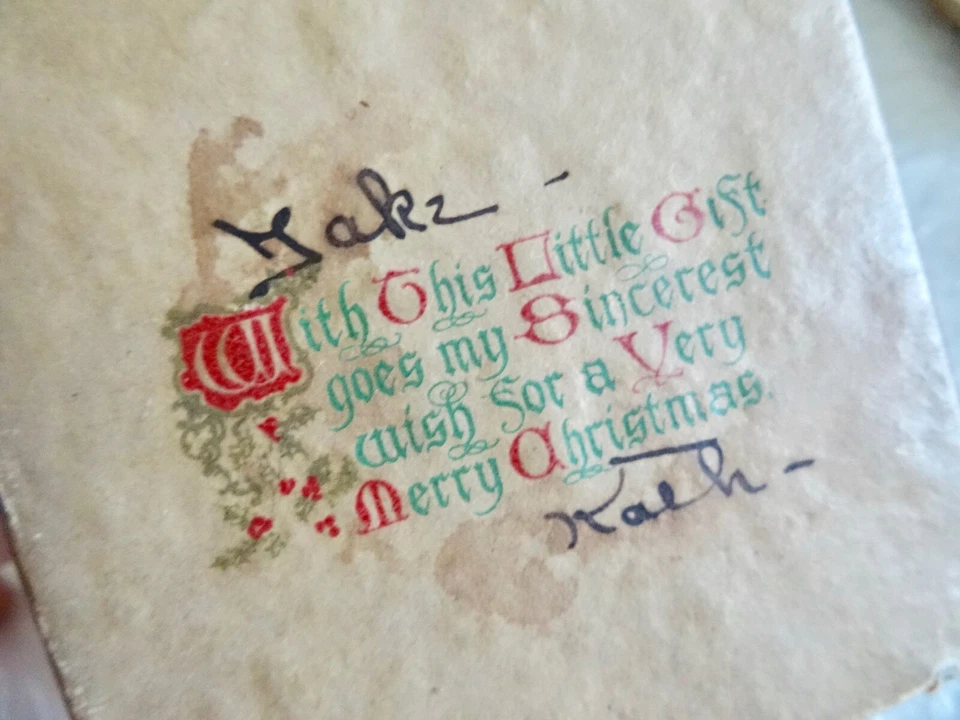 Jake -
With This Little Gift
goes my Sincerest
wish for a Very
Merry Christmas.
Kath -